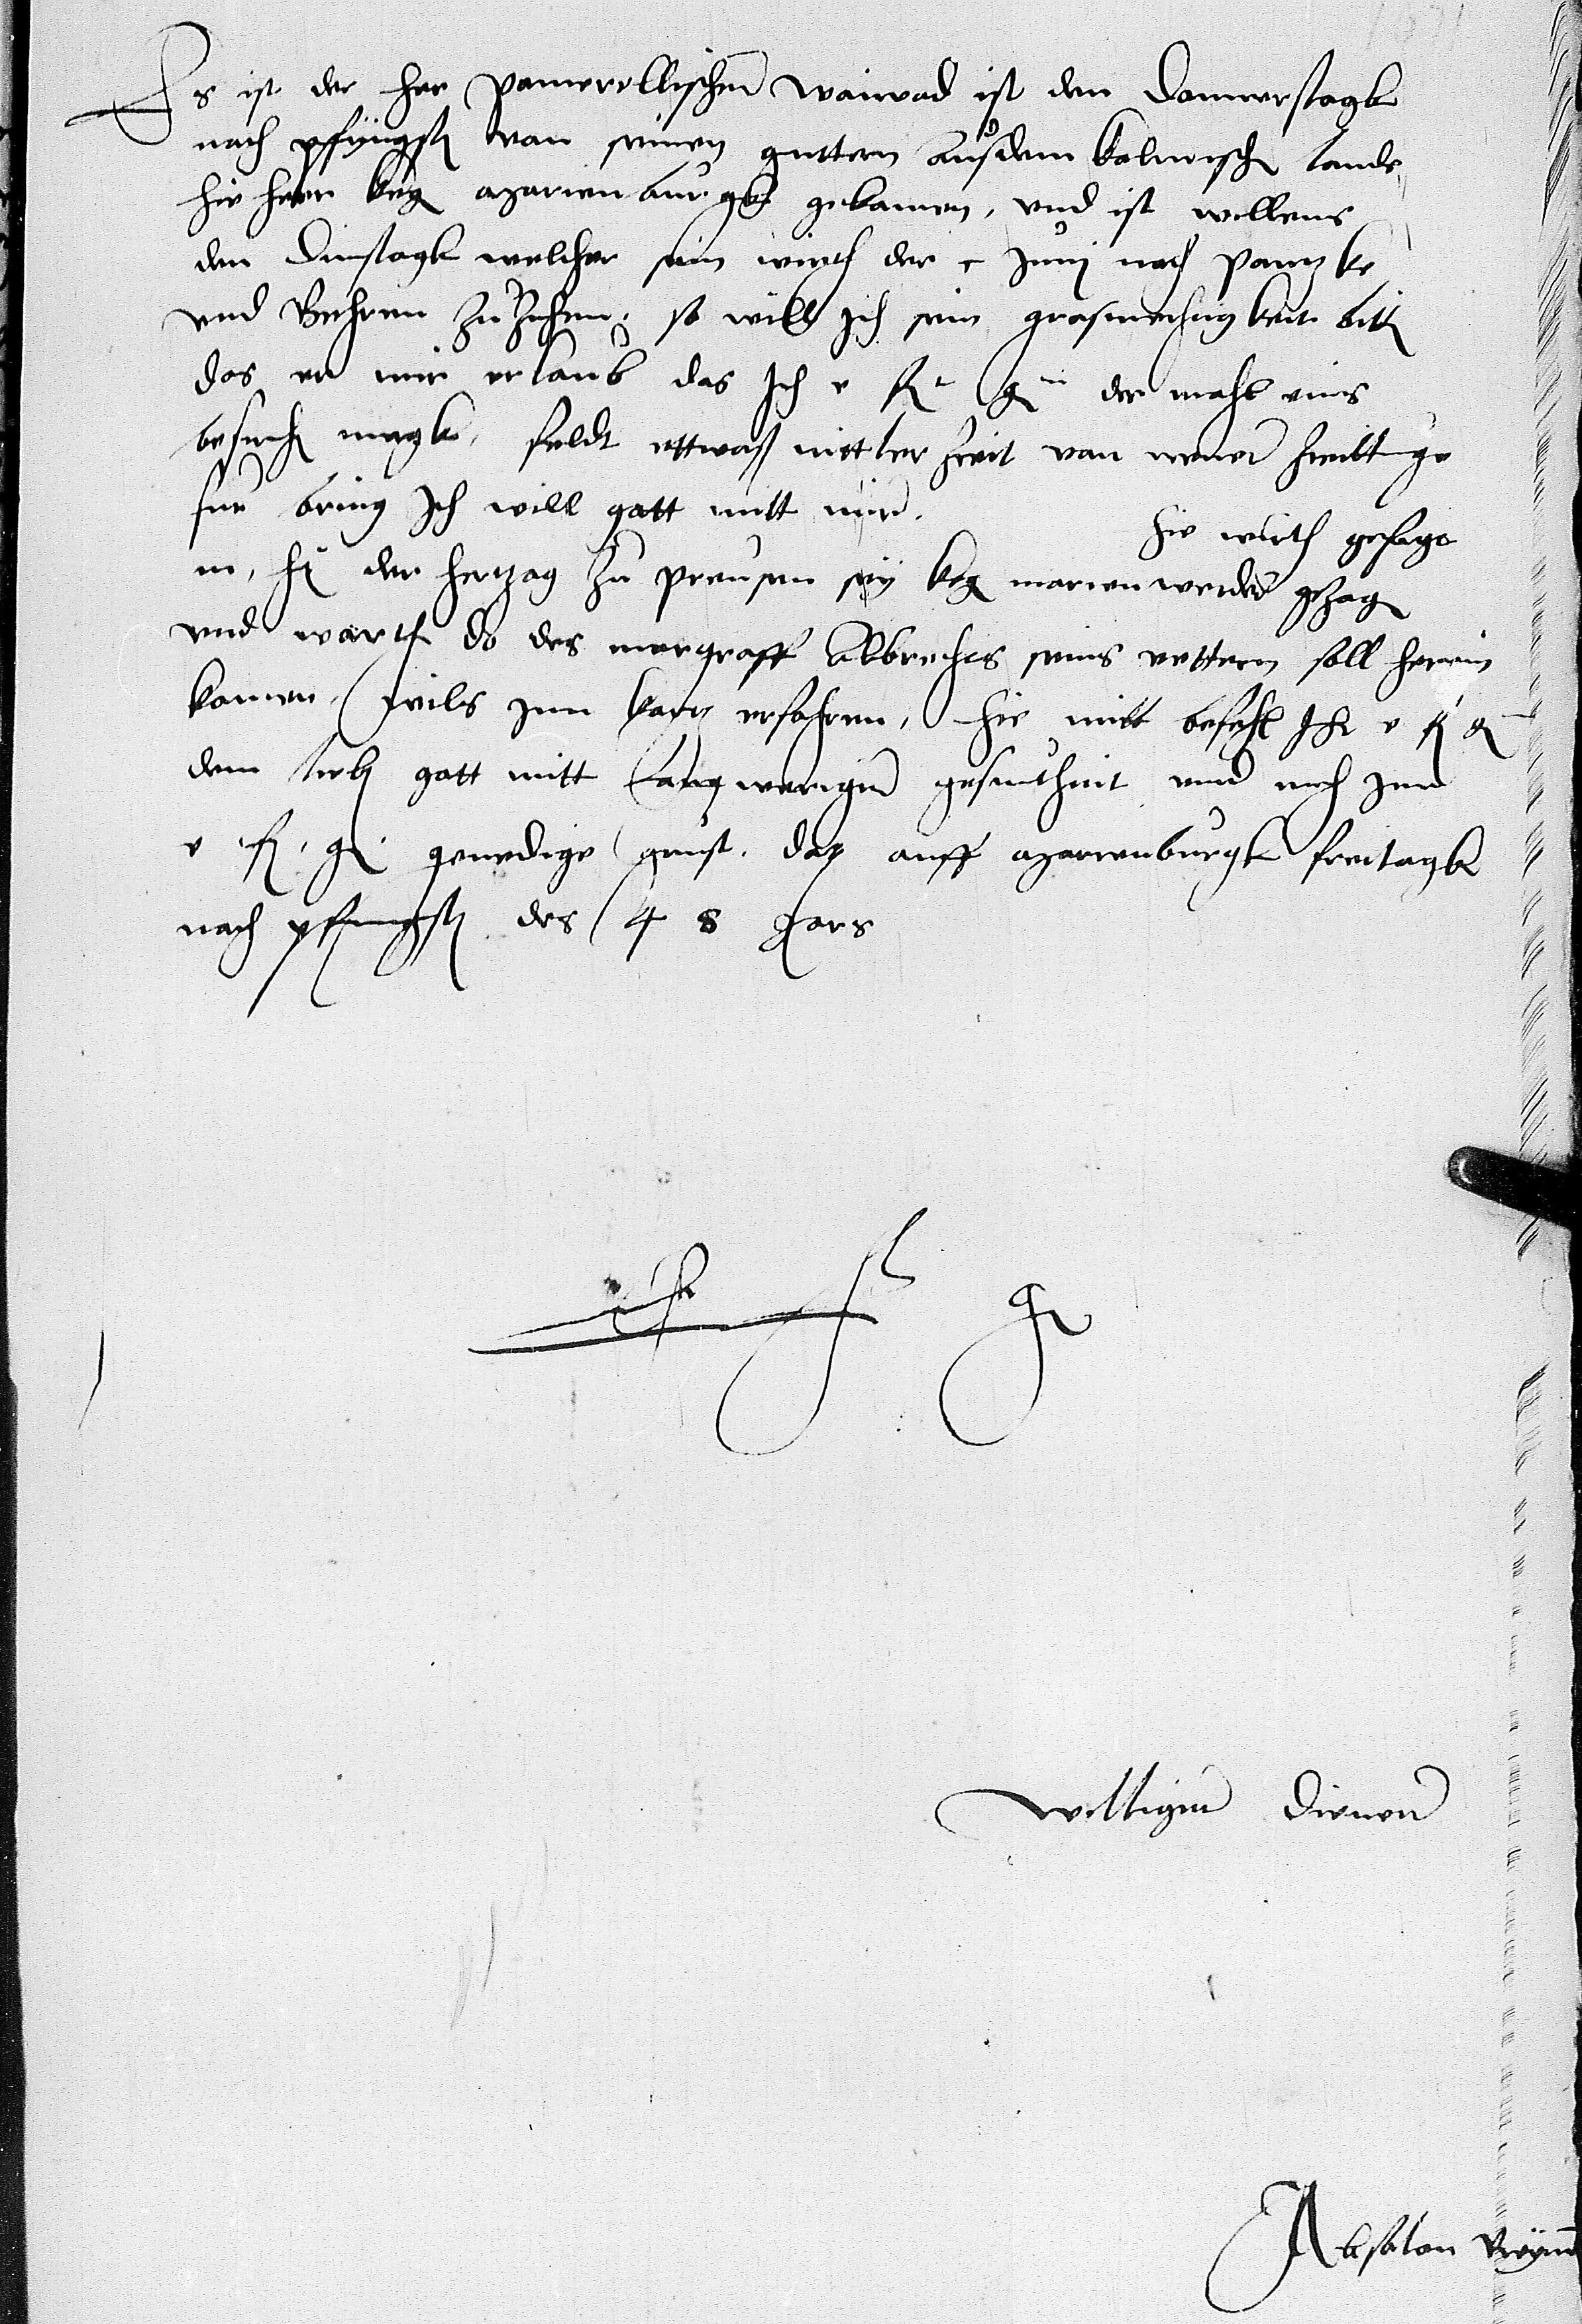 Es ist der her pomerellischer waiwad ist den Donnerstagk
nach pfingsten von seinen guttern aus dem kolmischen lande
hie herr keg Marienburgk gekomen, und ist willens
den Dinstagk welcher sein wirth der 5 Junij nach pautzke
und Behren zu zihen, so will Ich sein grosmechtigkeit bitten
das er mir erlaub das Ich e f g der mahl eins
besuchen magk, feldt ettwas mittler zeit von newer zeittunge
fur bring Ich will gott mitt mir. hie wirth gesaget
der hertzog zu preusen sey keg marienwerder gezogen
und warth do des margraff Albrechts seins vettern soll herein
komen, wils inn kortz erfahren, hie mitt befehl Ich e f g
dem lieben gott mitt langweriger gesuntheit und mich inn
e f g genedige gunst. datum auff Marienburgk freitagk
nach pfingsten des 48 Jars
e f g
williger Diener
Absolon